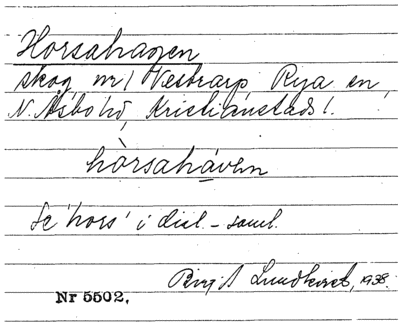 Horsahagen
skog, nr 1 Västrarp, Rya sn,
N. Åsbo hd, Kristianstads l.
hòrsaháven
Se 'hors' i dial.-saml.
Birgit Lundkvist, 1938.
Nr 5502.